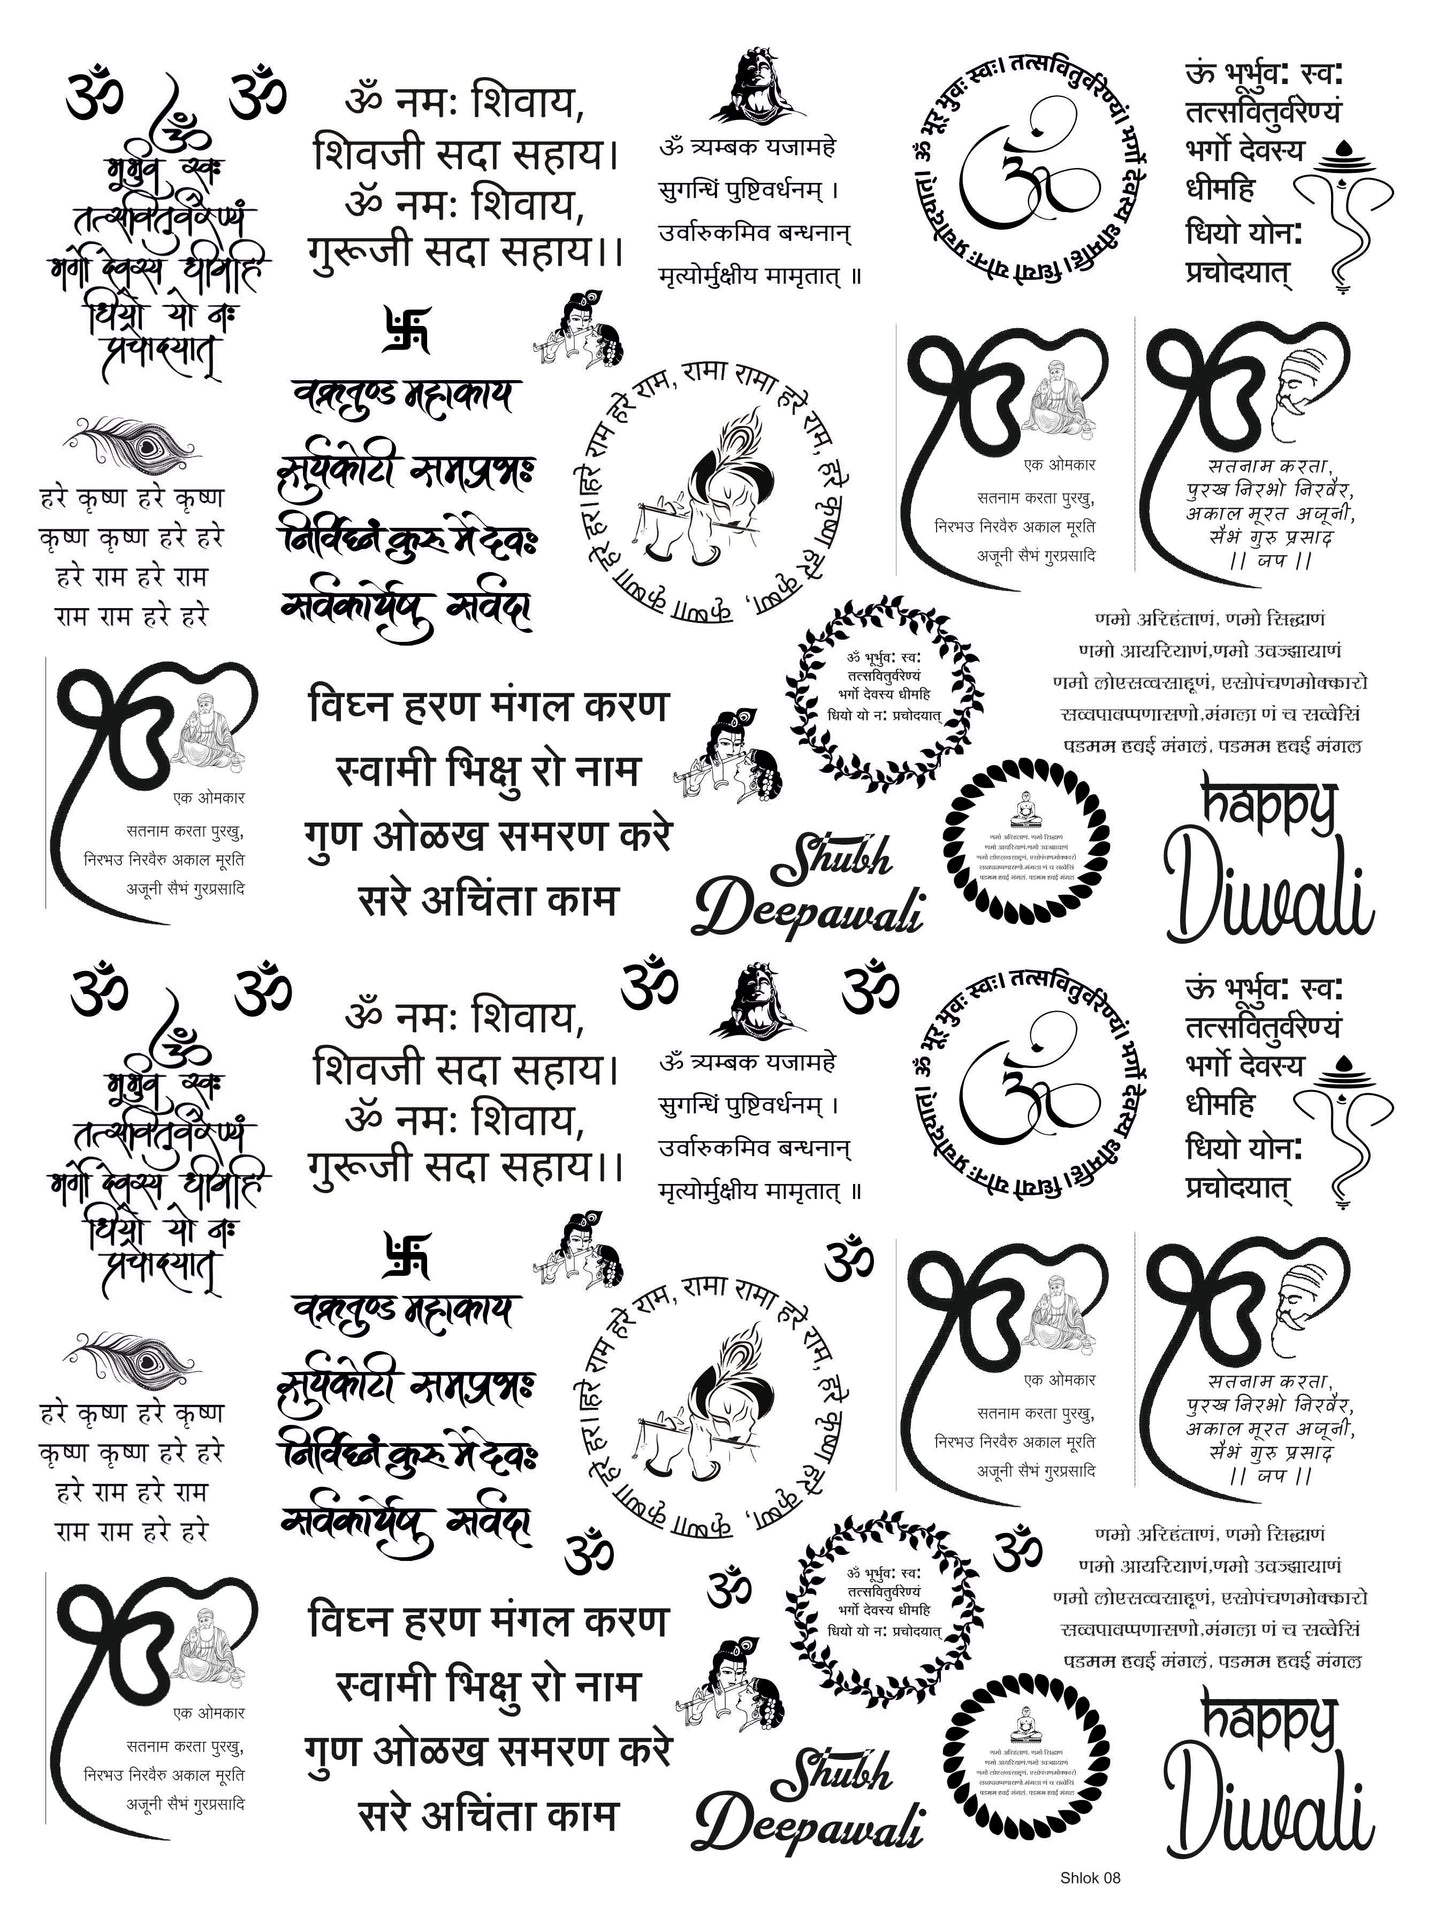 ॐ ॐ
ॐ
भूर्भुव स्वः
तत्सवितुर्वरेण्यं
भर्गो देवस्य धीमहि
धियो यो नः
प्रचोदयात्
ॐ नमः शिवाय,
शिवजी सदा सहाय।
ॐ नमः शिवाय,
गुरूजी सदा सहाय।।
ॐ त्र्यम्बक यजामहे
सुगन्धिं पुष्टिवर्धनम् ।
उर्वारुकमिव बन्धनान्
मृत्योर्मुक्षीय मामृतात् ॥
ॐ भूर भुवः स्वः। तत्सवितुर्वरेण्यं। भर्गो देवस्य धीमहि। धियो योनः प्रचोदयात्।
ॐ
ऊं भूर्भुव: स्व:
तत्सवितुर्वरेण्यं
भर्गो देवस्य
धीमहि
धियो योन:
प्रचोदयात्
卐
वक्रतुण्ड महाकाय
सुर्यकोटी समप्रभः
निर्विघ्नं कुरु मे देवः
सर्वकार्येषु सर्वदा
हरे कृष्ण हरे कृष्ण
कृष्ण कृष्ण हरे हरे
हरे राम हरे राम
राम राम हरे हरे
हरे राम हरे राम, रामा रामा हरे राम, हरे कृष्ण हरे कृष्ण, कृष्णा कृष्णा हरे हरा।
ੴ
एक ओमकार
सतनाम करता पुरखु,
निरभउ निरवैरु अकाल मूरति
अजूनी सैभं गुरप्रसादि
ੴ
सतनाम करता,
पुरख निरभो निरवैर,
अकाल मूरत अजूनी,
सैभं गुरु प्रसाद
।। जप ।।
ॐ भूर्भुव: स्व:
तत्सवितुर्वरेण्यं
भर्गो देवस्य धीमहि
धियो यो न: प्रचोदयात्
णमो अरिहंताणं, णमो सिद्धाणं
णमो आयरियाणं,णमो उवज्झायाणं
णमो लोएसव्वसाहूणं, एसोपंचणमोक्कारो
सव्वपावप्पणासणो,मंगला णं च सव्वेसिं
पडमम हवई मंगलं, पडमम हवई मंगल
ੴ
एक ओमकार
सतनाम करता पुरखु,
निरभउ निरवैरु अकाल मूरति
अजूनी सैभं गुरप्रसादि
विघ्न हरण मंगल करण
स्वामी भिक्षु रो नाम
गुण ओळख समरण करे
सरे अचिंता काम
Shubh
Deepawali
णमो अरिहंताणं, णमो सिद्धाणं
णमो आयरियाणं,णमो उवज्झायाणं
णमो लोएसव्वसाहूणं, एसोपंचणमोक्कारो
सव्वपावप्पणासणो,मंगला णं च सव्वेसिं
पडमम हवई मंगलं, पडमम हवई मंगल
happy
Diwali
ॐ ॐ ॐ ॐ
ॐ
भूर्भुव स्वः
तत्सवितुर्वरेण्यं
भर्गो देवस्य धीमहि
धियो यो नः
प्रचोदयात्
ॐ नमः शिवाय,
शिवजी सदा सहाय।
ॐ नमः शिवाय,
गुरूजी सदा सहाय।।
ॐ त्र्यम्बक यजामहे
सुगन्धिं पुष्टिवर्धनम् ।
उर्वारुकमिव बन्धनान्
मृत्योर्मुक्षीय मामृतात् ॥
ॐ भूर भुवः स्वः। तत्सवितुर्वरेण्यं। भर्गो देवस्य धीमहि। धियो योनः प्रचोदयात्।
ॐ
ऊं भूर्भुव: स्व:
तत्सवितुर्वरेण्यं
भर्गो देवस्य
धीमहि
धियो योन:
प्रचोदयात्
卐
ॐ
वक्रतुण्ड महाकाय
सुर्यकोटी समप्रभः
निर्विघ्नं कुरु मे देवः
सर्वकार्येषु सर्वदा
हरे कृष्ण हरे कृष्ण
कृष्ण कृष्ण हरे हरे
हरे राम हरे राम
राम राम हरे हरे
हरे राम हरे राम, रामा रामा हरे राम, हरे कृष्ण हरे कृष्ण, कृष्णा कृष्णा हरे हरा।
ੴ
एक ओमकार
सतनाम करता पुरखु,
निरभउ निरवैरु अकाल मूरति
अजूनी सैभं गुरप्रसादि
ੴ
सतनाम करता,
पुरख निरभो निरवैर,
अकाल मूरत अजूनी,
सैभं गुरु प्रसाद
।। जप ।।
ॐ ॐ ॐ
ॐ भूर्भुव: स्व:
तत्सवितुर्वरेण्यं
भर्गो देवस्य धीमहि
धियो यो न: प्रचोदयात्
णमो अरिहंताणं, णमो सिद्धाणं
णमो आयरियाणं,णमो उवज्झायाणं
णमो लोएसव्वसाहूणं, एसोपंचणमोक्कारो
सव्वपावप्पणासणो,मंगला णं च सव्वेसिं
पडमम हवई मंगलं, पडमम हवई मंगल
ੴ
एक ओमकार
सतनाम करता पुरखु,
निरभउ निरवैरु अकाल मूरति
अजूनी सैभं गुरप्रसादि
विघ्न हरण मंगल करण
स्वामी भिक्षु रो नाम
गुण ओळख समरण करे
सरे अचिंता काम
Shubh
Deepawali
णमो अरिहंताणं, णमो सिद्धाणं
णमो आयरियाणं,णमो उवज्झायाणं
णमो लोएसव्वसाहूणं, एसोपंचणमोक्कारो
सव्वपावप्पणासणो,मंगला णं च सव्वेसिं
पडमम हवई मंगलं, पडमम हवई मंगल
happy
Diwali
Shlok 08